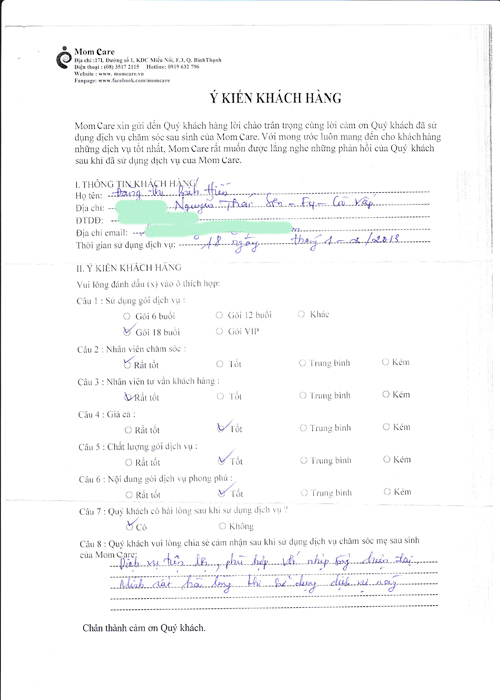 Mom Care
Địa chỉ :17L Đường số 1, KDC Miếu Nổi, F.3, Q. BìnhThạnh
Điện thoại : (08) 3517 2115 Hotline: 0919 632 796
Website : www. momcare.vn
Fanpage: www.facebook.com/momcare
Ý KIẾN KHÁCH HÀNG
Mom Care xin gửi đến Quý khách hàng lời chào trân trọng cùng lời cám ơn Quý khách đã sử
dụng dịch vụ chăm sóc sau sinh của Mom Care. Với mong ước luôn mang đến cho khách hàng
những dịch vụ tốt nhất, Mom Care rất muốn được lắng nghe những phản hồi của Quý khách
sau khi đã sử dụng dịch vụ của Mom Care.
I. THÔNG TIN KHÁCH HÀNG
Họ tên: Đặng Thị Hiền
Địa chỉ: Nguyễn Thái Sơn - F4 - Gò Vấp
ĐTDĐ:
Địa chỉ email: m
Thời gian sử dụng dịch vụ: 18 ngày tháng 1 - 2/2013
II. Ý KIẾN KHÁCH HÀNG
Vui lòng đánh dấu (x) vào ô thích hợp:
Câu 1 : Sử dụng gói dịch vụ :
Gói 6 buổi Gói 12 buổi Khác
Gói 18 buổi Gói VIP
Câu 2 : Nhân viên chăm sóc :
Rất tốt Tốt Trung bình Kém
Câu 3 : Nhân viên tư vấn khách hàng :
Rất tốt Tốt Trung bình Kém
Câu 4 : Giá cả :
Rất tốt Tốt Trung bình Kém
Câu 5 : Chất lượng gói dịch vụ :
Rất tốt Tốt Trung bình Kém
Câu 6 : Nội dung gói dịch vụ phong phú :
Rất tốt Tốt Trung bình Kém
Câu 7 : Quý khách có hài lòng sau khi sử dụng dịch vụ ?
Có Không
Câu 8 : Quý khách vui lòng chia sẻ cảm nhận sau khi sử dụng dịch vụ chăm sóc mẹ sau sinh
của Mom Care:
Dịch vụ tiện lợi, phù hợp với nhịp sống hiện đại
Mình rất hài lòng khi sử dụng dịch vụ này
Chân thành cảm ơn Quý khách.